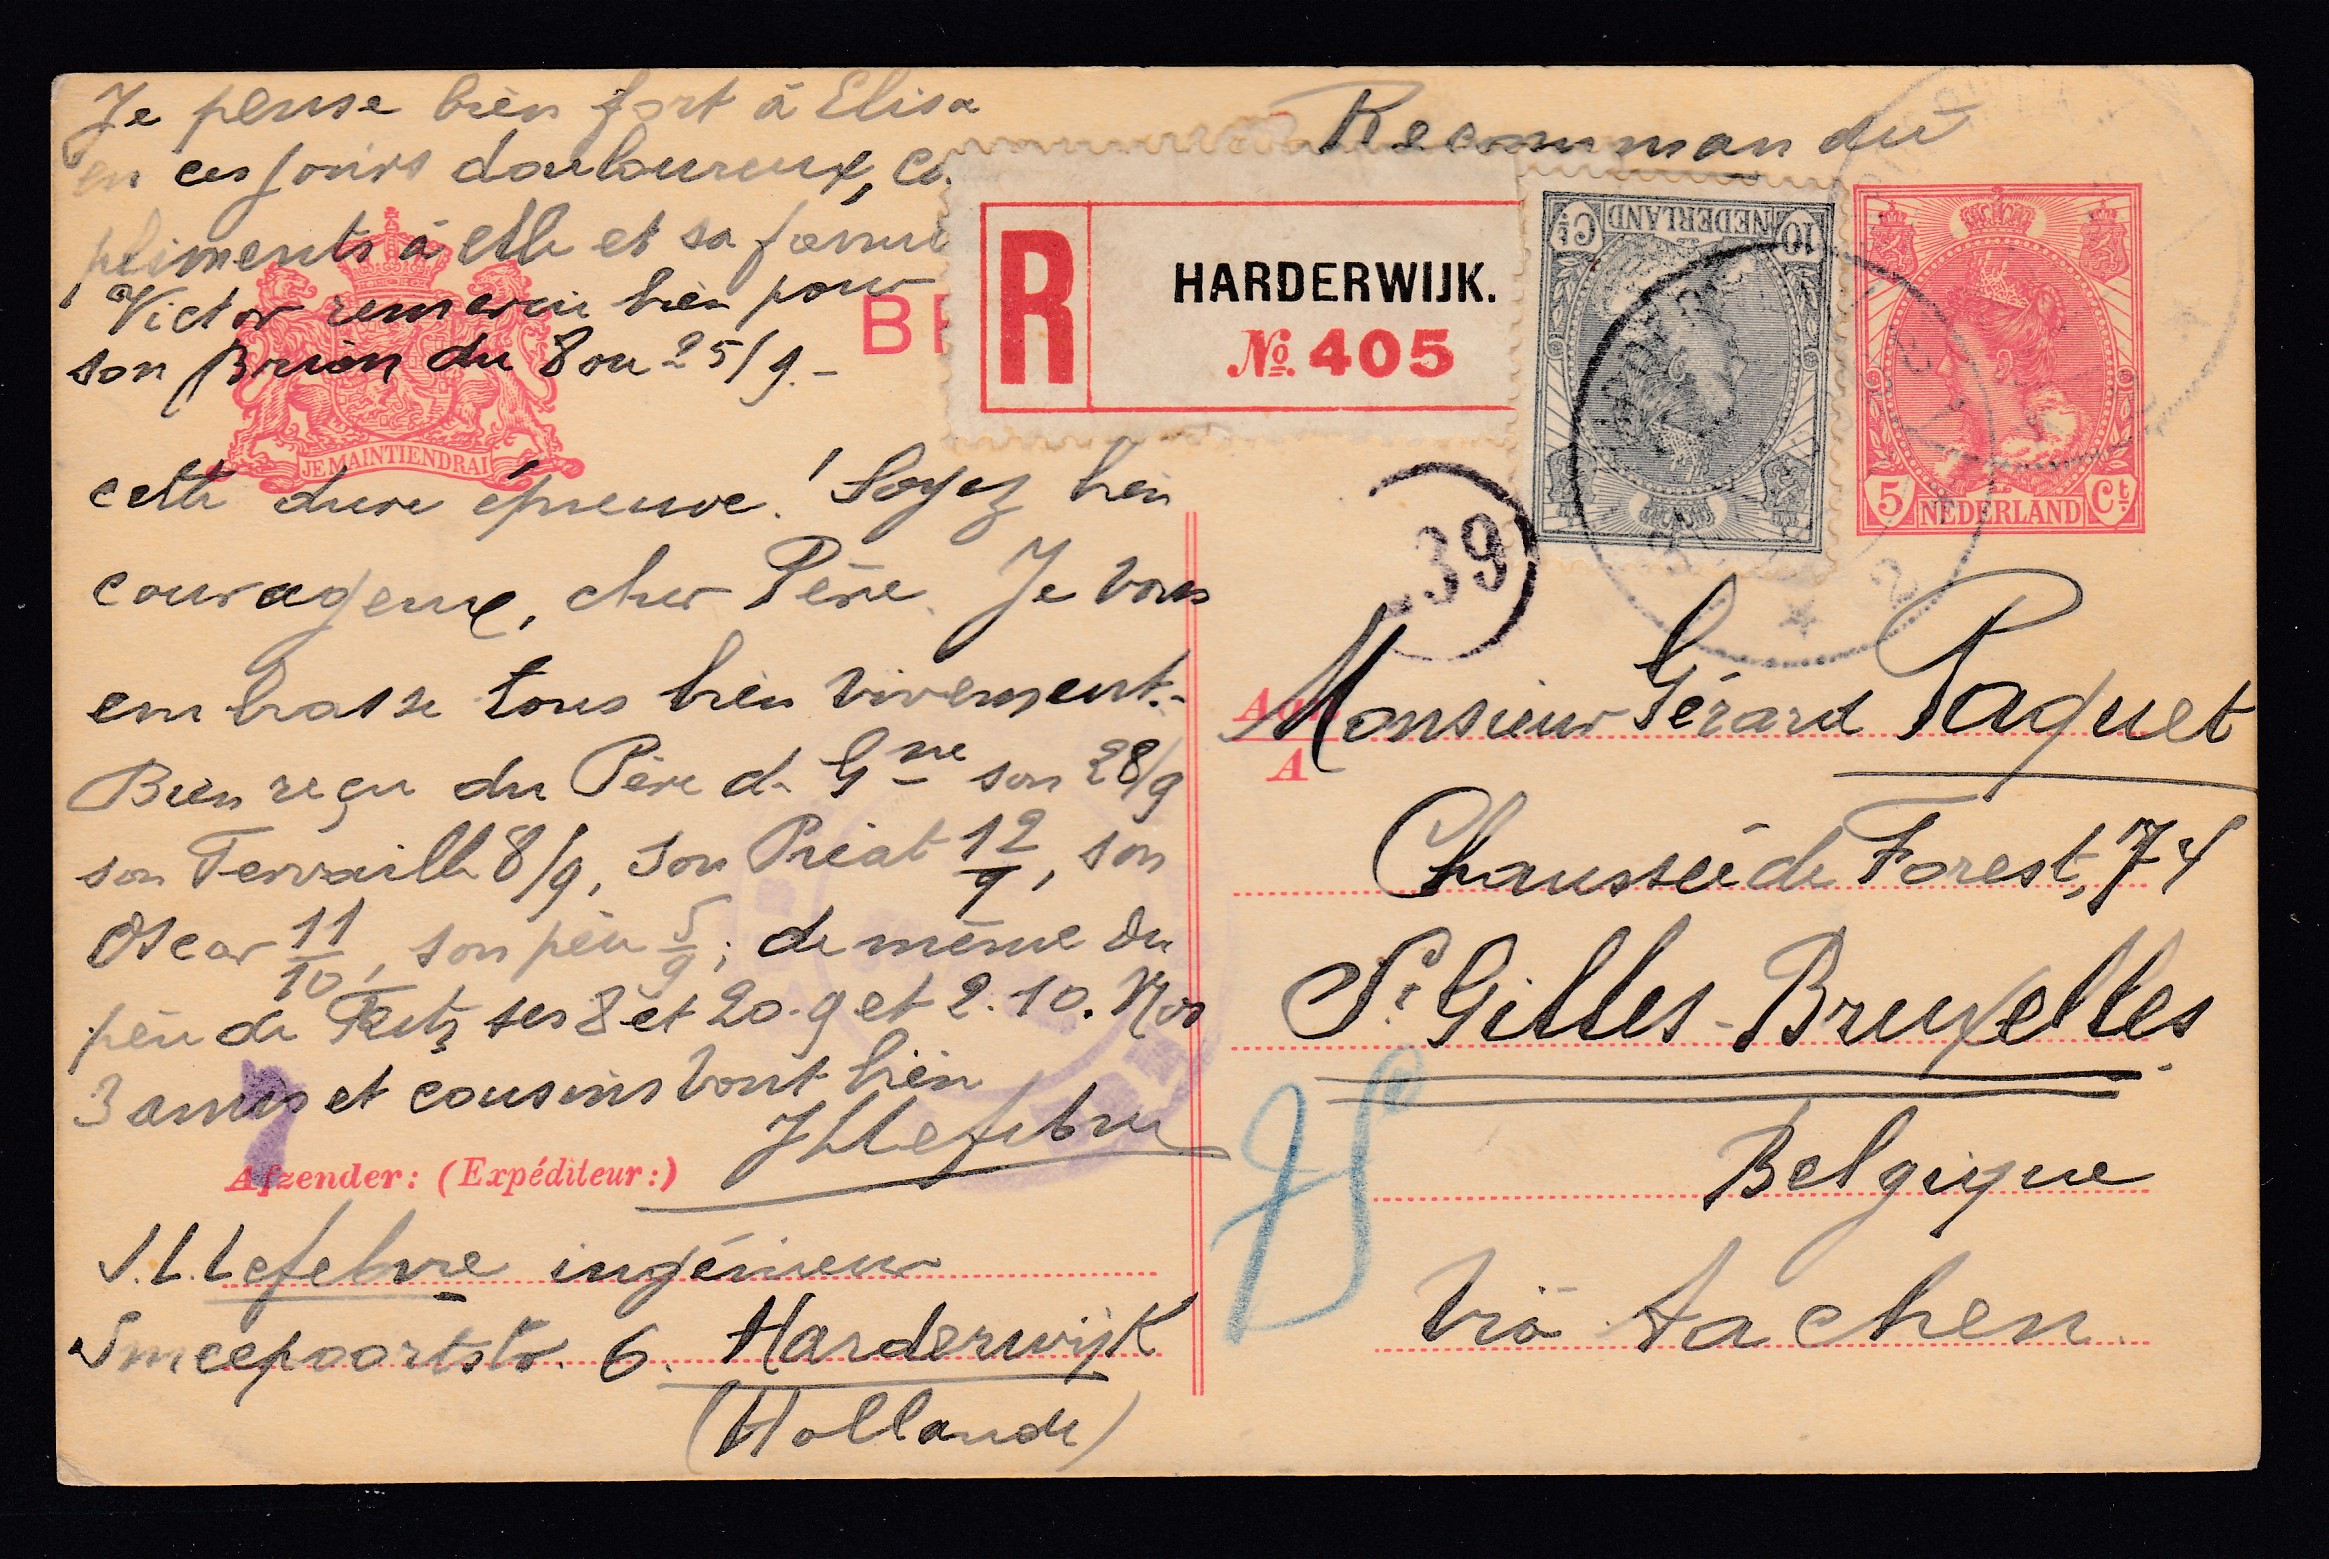 Je pense bien fort à Elisa
en ces jours douloureux, co
pliments à elle et sa fami
Victor remercie bien pour
son Brion du 8 ou 25/9.-
JE MAINTIENDRAI
cette dure épreuve! Soyez bien
courageux, cher Père. Je vous
embrasse tous bien vivement.-
Bien reçu du Père d. Gne son 28/9
son 8/9, son 12/9, son
Oscar 11/10, son père 5/9; de même du
père de ses 8 et 20.9 et 2.10. Nos
3 amis et cousins vont bien
JLLefebvre
Afzender: (Expéditeur:)
J.L.Lefebvre ingénieur
Smeepoortstr. 6. Harderwijk
(Hollande)
Recommandé
BR
R
HARDERWIJK.
No. 405
10 Ct
NEDERLAND
5 Ct
NEDERLAND
39
A
Monsieur Gérard Paquet
Chaussée de Forest, 74
St Gilles-Bruxelles.
Belgique
Via Aachen.